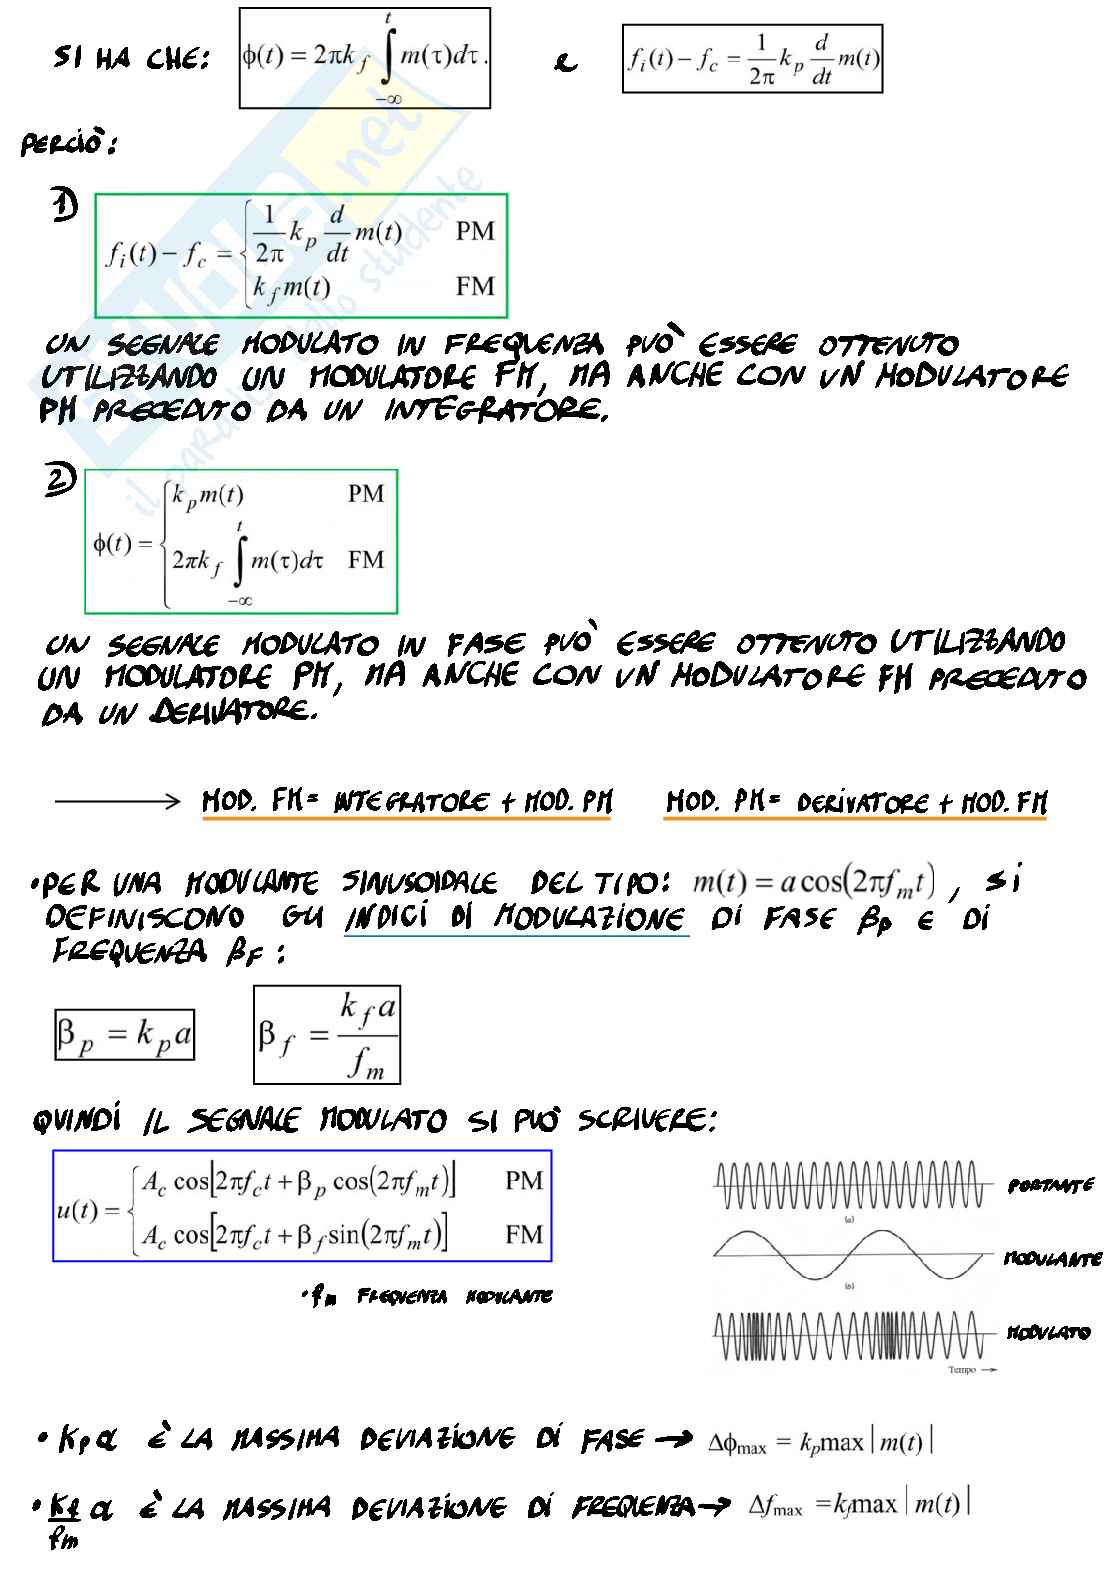 SI HA CHE: ϕ(t) = 2πk_f ∫_{-∞}^{t} m(τ)dτ. e f_i(t) − f_c = 1/2π k_p d/dt m(t)
PERCIÒ:
1) f_i(t) − f_c = { 1/2π k_p d/dt m(t) PM
k_f m(t) FM
UN SEGNALE MODULATO IN FREQUENZA PUÒ ESSERE OTTENUTO
UTILIZZANDO UN MODULATORE FM, MA ANCHE CON UN MODULATORE
PM PRECEDUTO DA UN INTEGRATORE.
2) ϕ(t) = { k_p m(t) PM
2πk_f ∫_{-∞}^{t} m(τ)dτ FM
UN SEGNALE MODULATO IN FASE PUÒ ESSERE OTTENUTO UTILIZZANDO
UN MODULATORE PM, MA ANCHE CON UN MODULATORE FM PRECEDUTO
DA UN DERIVATORE.
→ MOD. FM = INTEGRATORE + MOD. PM MOD. PM = DERIVATORE + MOD. FM
• PER UNA MODULANTE SINUSOIDALE DEL TIPO: m(t) = a cos(2πf_m t), SI
DEFINISCONO GLI INDICI DI MODULAZIONE DI FASE β_P E DI
FREQUENZA β_F:
β_p = k_p a β_f = k_f a / f_m
QUINDI IL SEGNALE MODULATO SI PUÒ SCRIVERE:
u(t) = { A_c cos[2πf_c t + β_p cos(2πf_m t)] PM
A_c cos[2πf_c t + β_f sin(2πf_m t)] FM
• f_m FREQUENZA MODULANTE
PORTANTE
(a)
MODULANTE
(b)
MODULATO
Tempo →
• K_p a È LA MASSIMA DEVIAZIONE DI FASE → Δϕ_max = k_p max|m(t)|
• K_f/f_m a È LA MASSIMA DEVIAZIONE DI FREQUENZA → Δf_max = k_f max|m(t)|